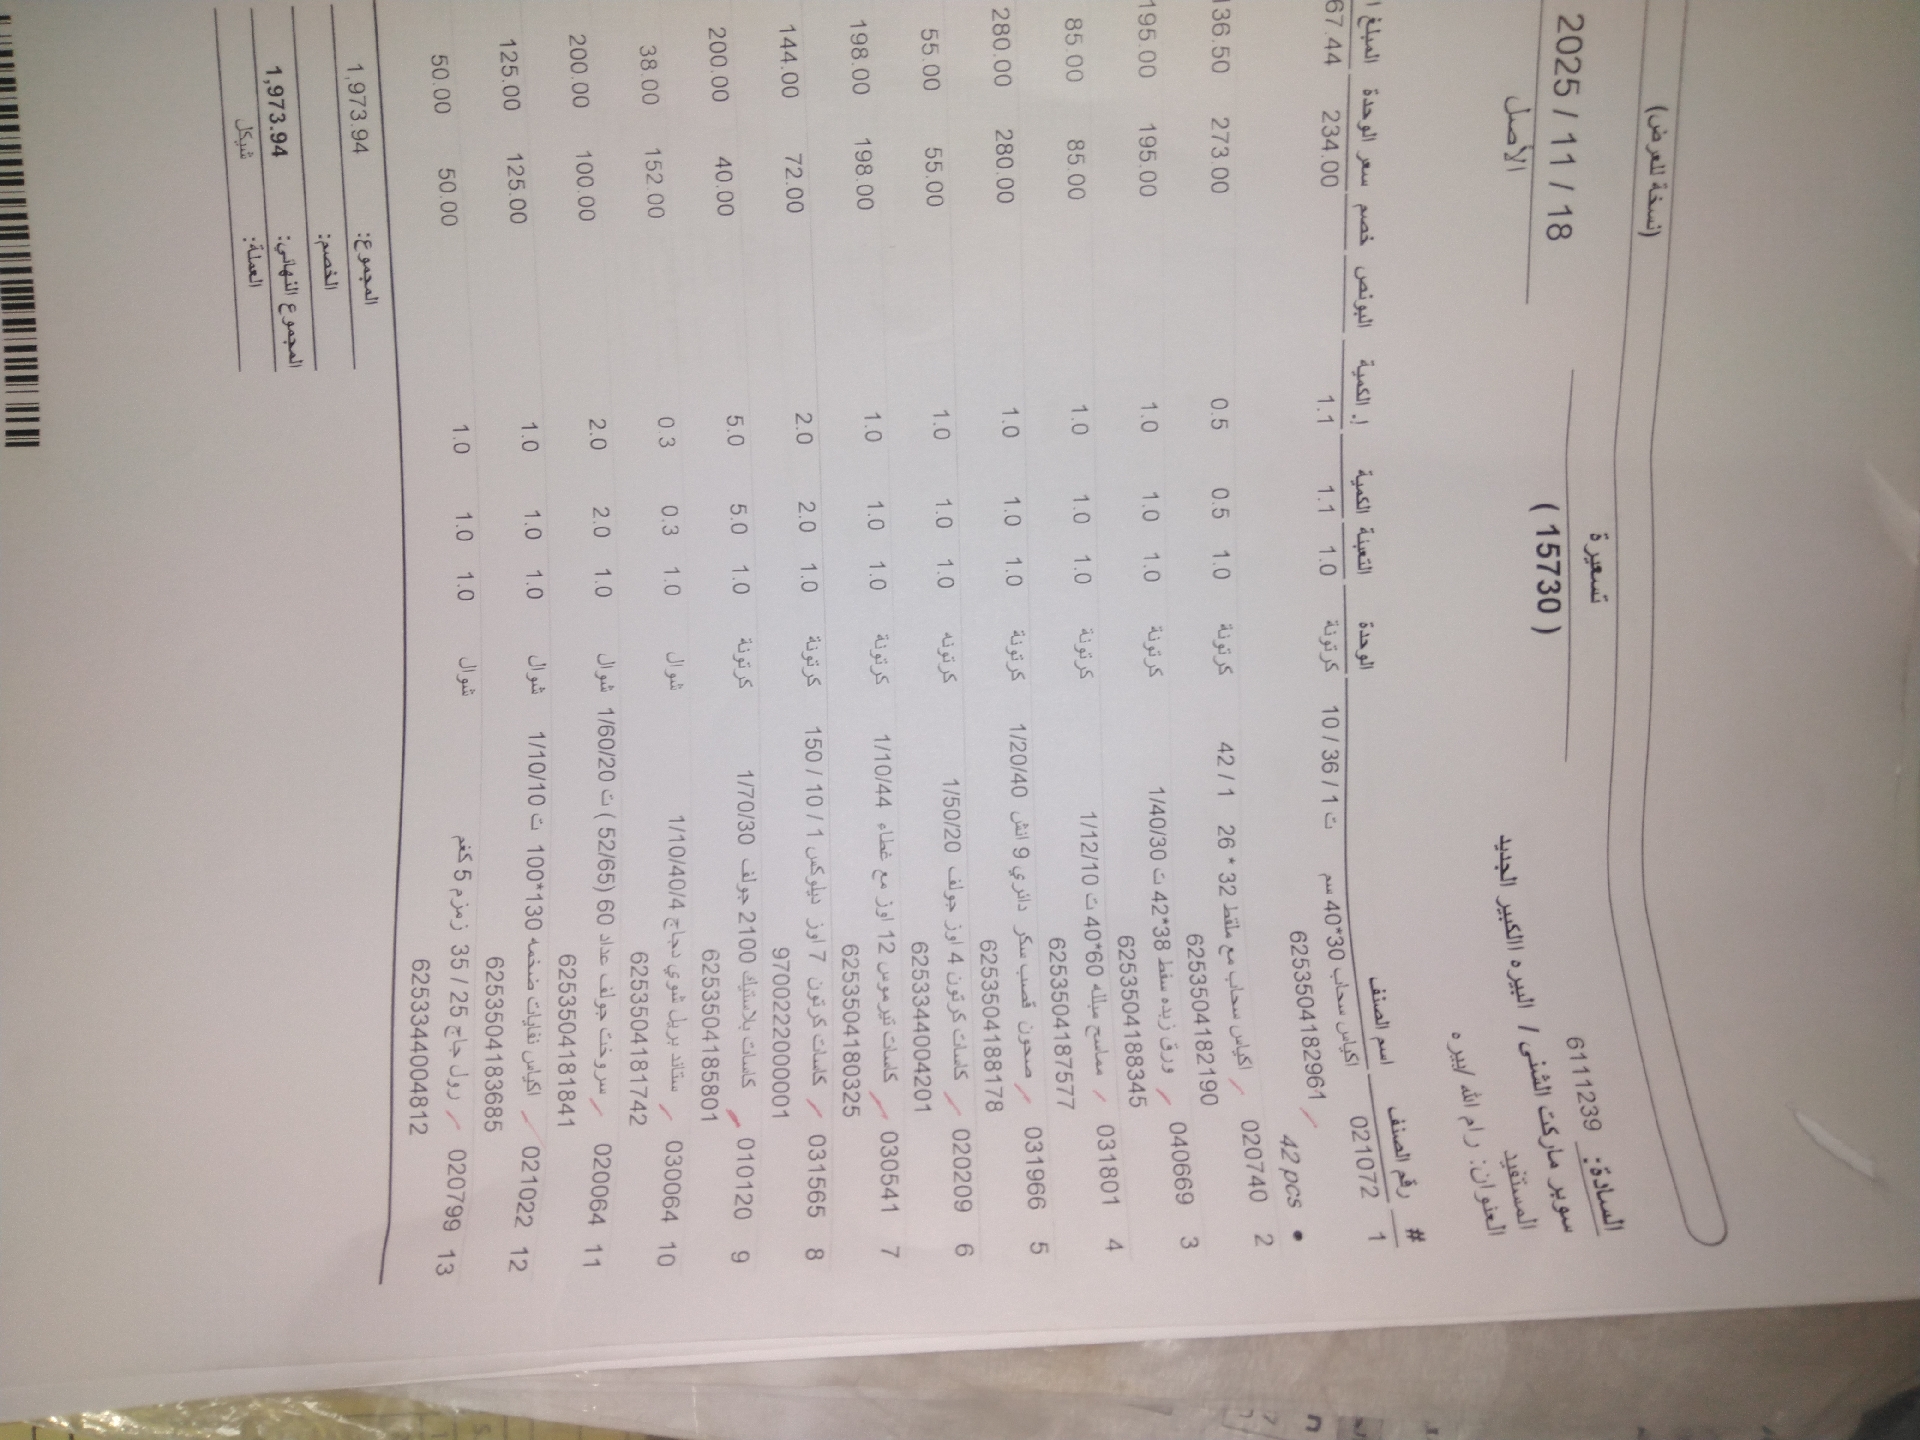 (نسخة للعرض)
السادة: 6111239
سوبر ماركت الشنى / البيره الكبير الجديد
المستفيد
العنوان: رام الله /بيره
تسعيرة
( 15730 )
2025 / 11 / 18
الأصل
# رقم الصنف اسم الصنف الوحدة التعبئة الكمية إ. الكمية البونص خصم سعر الوحدة المبلغ
1 021072 اكياس سحاب 30*40 سم ت 1 / 36 / 10 كرتونة 1.0 1.1 1.1 234.00 67.44
6253504182961
• 42 pcs
2 020740 اكياس سحاب مع ملقط 32 * 26 1 / 42 كرتونة 1.0 0.5 0.5 273.00 136.50
6253504182190
3 040669 ورق زبده سفط 38*42 ت 1/40/30 كرتونة 1.0 1.0 1.0 195.00 195.00
6253504188345
4 031801 مماسح مبلله 60*40 ت 1/12/10 كرتونة 1.0 1.0 1.0 85.00 85.00
6253504187577
5 031966 صحون قصب سكر دائري 9 انش 1/20/40 كرتونة 1.0 1.0 1.0 280.00 280.00
6253504188178
6 020209 كاسات كرتون 4 اوز جولف 1/50/20 كرتونه 1.0 1.0 1.0 55.00 55.00
6253344004201
7 030541 كاسات تيرموس 12 اوز مع غطاء 1/10/44 كرتونة 1.0 1.0 1.0 198.00 198.00
6253504180325
8 031565 كاسات كرتون 7 اوز ديلوكس 1 / 10 / 150 كرتونة 1.0 2.0 2.0 72.00 144.00
9700222000001
9 010120 كاسات بلاستيك 2100 جولف 1/70/30 كرتونة 1.0 5.0 5.0 40.00 200.00
6253504185801
10 030064 ستاند بريل شوي دجاج 1/10/40/4 شوال 1.0 0.3 0.3 152.00 38.00
6253504181742
11 020064 سروخت جولف عداد 60 (52/65) ت 1/60/20 شوال 1.0 2.0 2.0 100.00 200.00
6253504181841
12 021022 اكياس نفايات ضخمه 130*100 ت 1/10/10 شوال 1.0 1.0 1.0 125.00 125.00
6253504183685
13 020799 رول جاج 25 / 35 زمزم 5 كغم شوال 1.0 1.0 1.0 50.00 50.00
6253344004812
المجموع: 1,973.94
الخصم:
المجموع النهائي: 1,973.94
العملة: شيكل